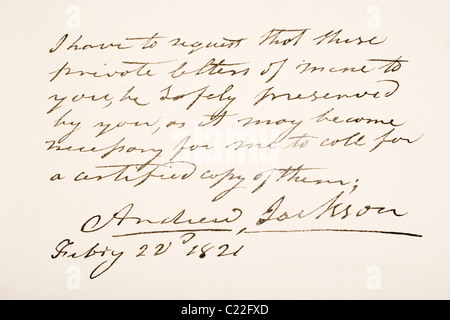 I have to request that these
private letters of mine to
you, be Safely preserved
by you, as it may become
necessary for me to call for
a certified copy of them;
Andrew, Jackson
Febry 22d 1821
alamy
Image ID: C22FXD
www.alamy.com